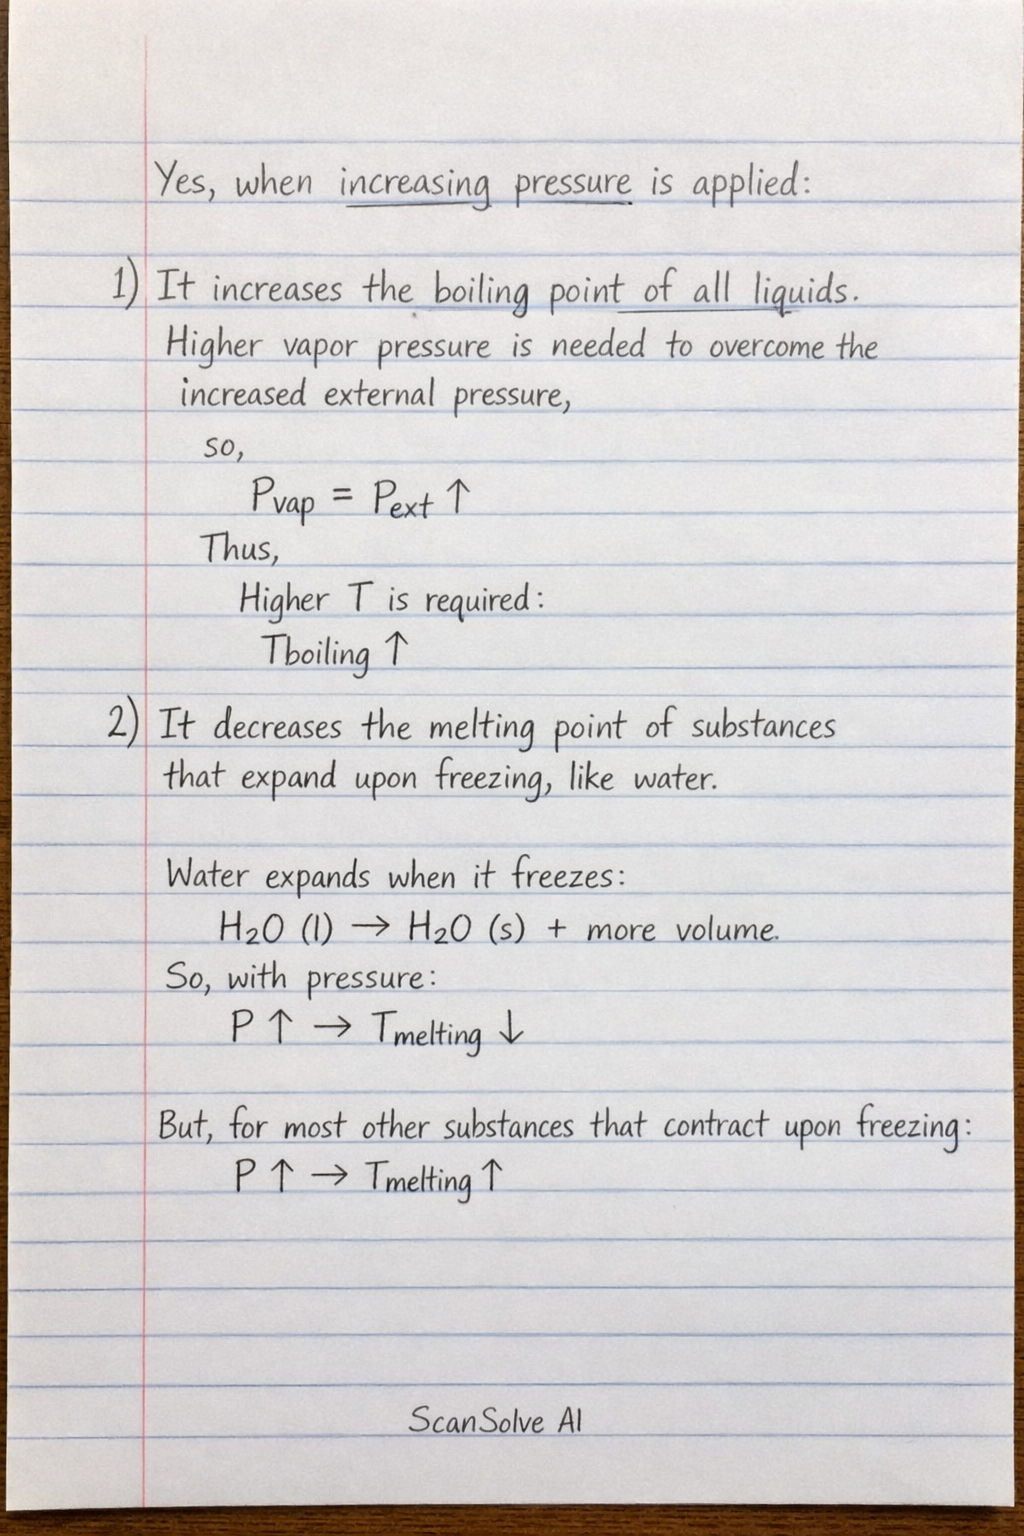 Yes, when increasing pressure is applied:
1) It increases the boiling point of all liquids.
Higher vapor pressure is needed to overcome the
increased external pressure,
so,
Pvap = Pext ↑
Thus,
Higher T is required:
Tboiling ↑
2) It decreases the melting point of substances
that expand upon freezing, like water.
Water expands when it freezes:
H₂O (l) → H₂O (s) + more volume.
So, with pressure:
P ↑ → Tmelting ↓
But, for most other substances that contract upon freezing:
P ↑ → Tmelting ↑
ScanSolve AI